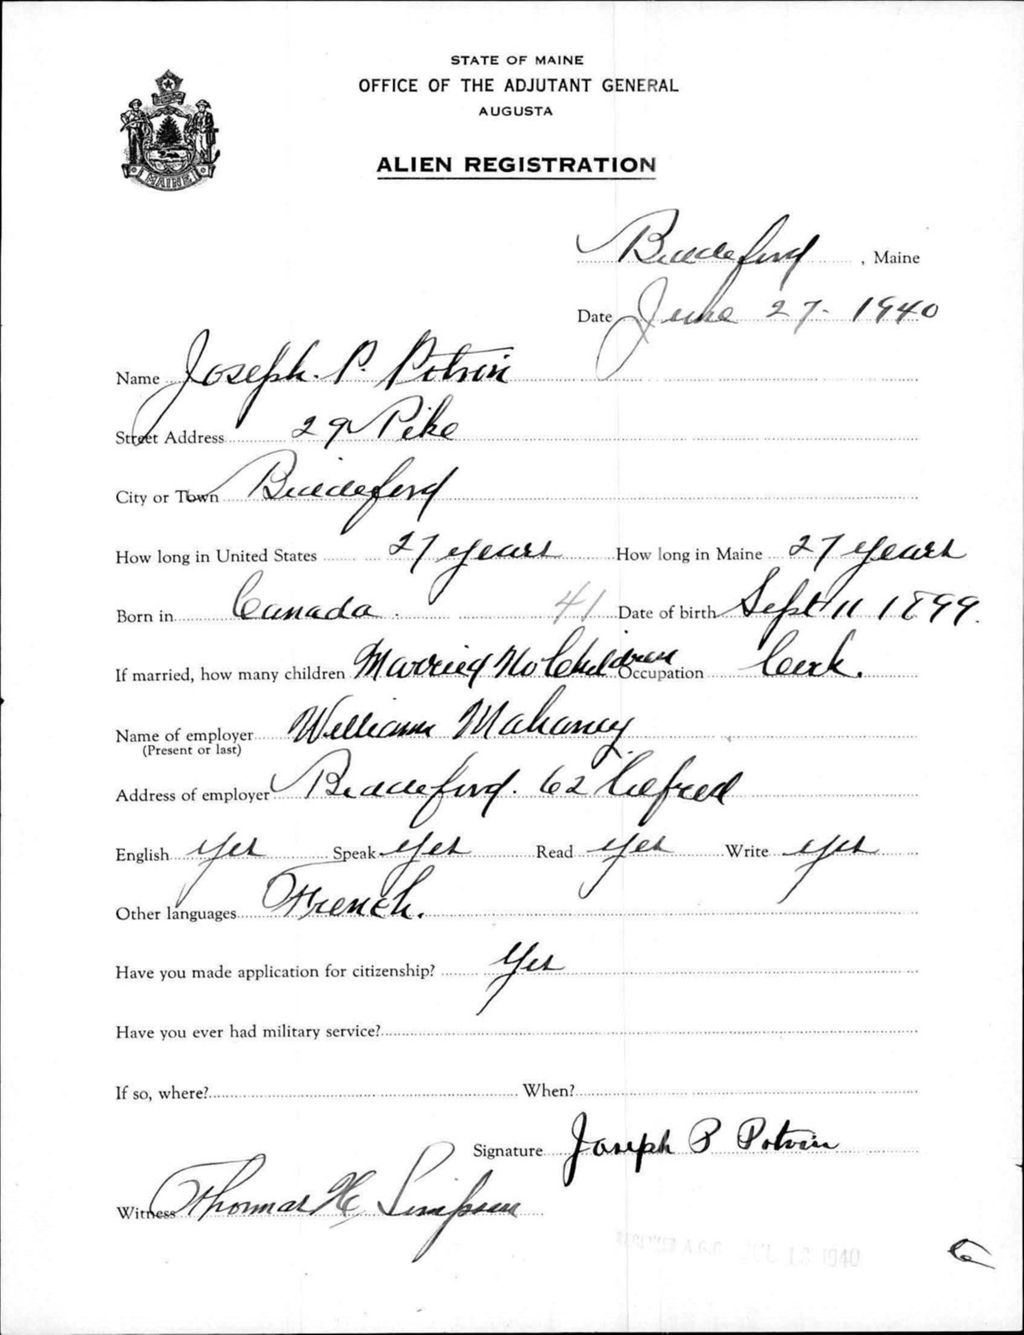 STATE OF MAINE
OFFICE OF THE ADJUTANT GENERAL
AUGUSTA
ALIEN REGISTRATION
MAINE
Biddeford, Maine
Date June 27- 1940
Name Joseph. P. Potvin
Street Address 29 Pike
City or Town Biddeford
How long in United States 27 years How long in Maine 27 years
Born in Canada. 41 Date of birth Sept 11 1899.
If married, how many children Married No Children Occupation Clerk.
Name of employer William Mahaney
(Present or last)
Address of employer Biddeford. 62 Alfred
English yes Speak yes Read yes Write yes
Other languages French.
Have you made application for citizenship? Yes
Have you ever had military service?
If so, where? When?
Signature Joseph P Potvin
Witness Thomas H Simpson
RECEIVED A.G.O. JUL 1940